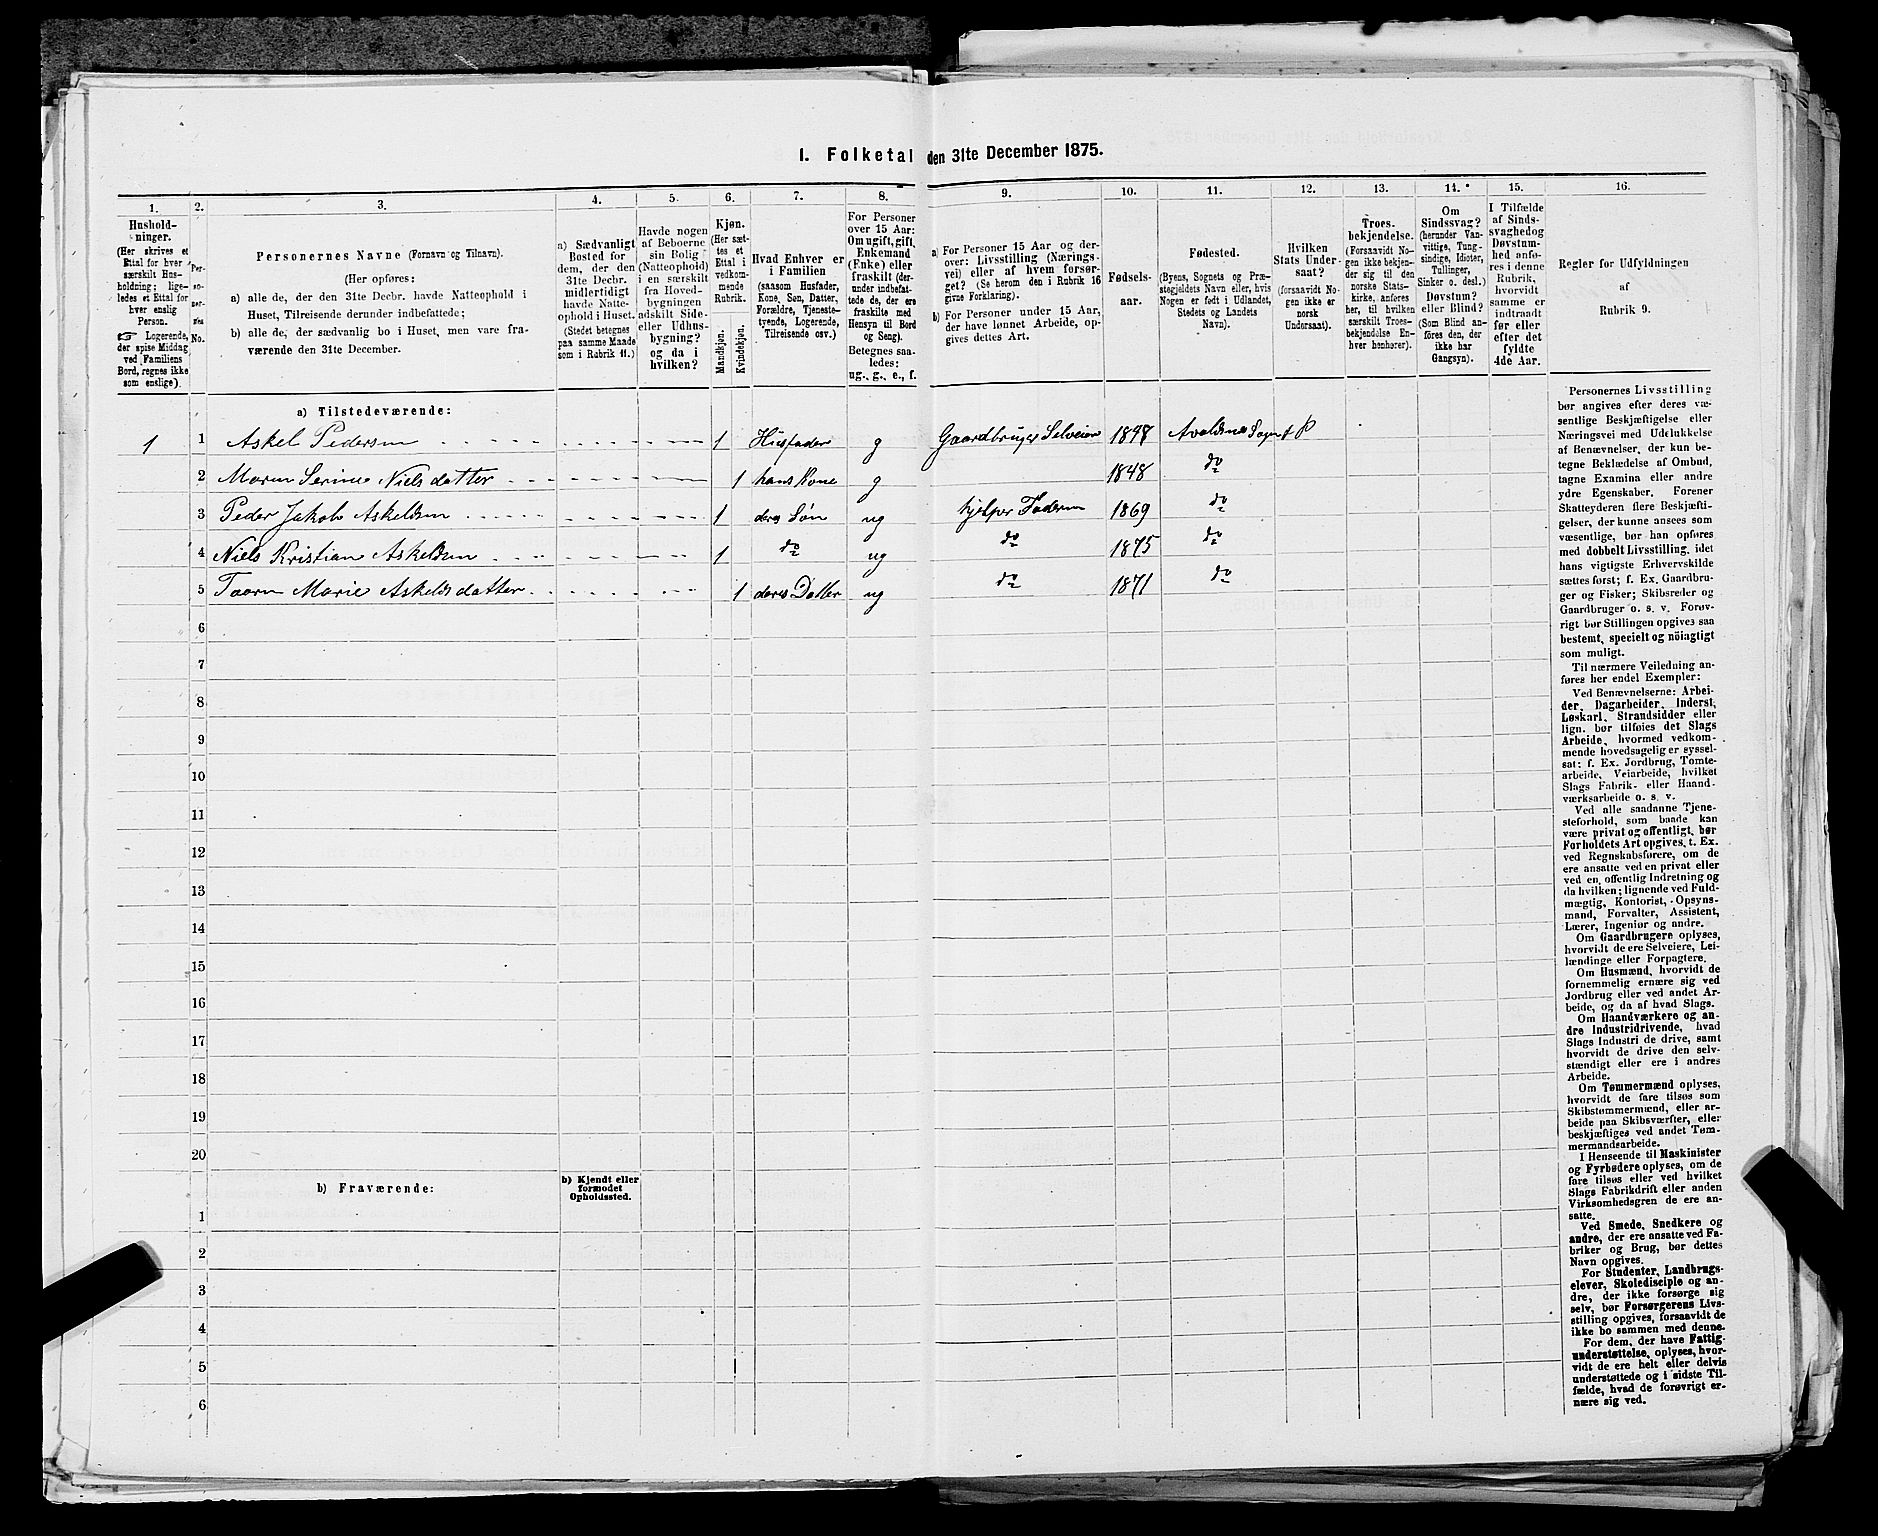 I. Folketal den 31te December 1875.
1.
2.
3.
4.
5.
6.
7.
8.
9.
10.
11.
12.
13.
14.
15.
16.
Hushold-
ninger.
(Her skrives et
Ettal for hver
særskilt Hus-
holdning; lige-
ledes et Ettal for
hver enslig
Person.
☞ Logerende,
der spise Middag
ved Familiens
Bord, regnes ikke
som enslige).
Per-
so-
ner-
nes
No.
Personernes Navne (Fornavn og Tilnavn).
(Her opføres:
a) alle de, der den 31te Decbr. havde Natteophold i
Huset, Tilreisende derunder indbefattede;
b) alle de, der sædvanlig bo i Huset, men vare fra-
værende den 31te December.
a) Sædvanligt
Bosted for
dem, der den
31te Decbr.
midlertidigt
havde Natte-
ophold i Huset.
(Stedet betegnes
paa samme Maade
som i Rubrik 11.)
Havde nogen
af Beboerne
sin Bolig
(Natteophold)
i en særskilt
fra Hoved-
bygningen
adskilt Side-
eller Udhus-
bygning?
og da i
hvilken?
Kjøn.
(Her sæt-
tes et
Ettal i
vedkom-
mende
Rubrik.
Mandkjøn.
Kvindekjøn.
Hvad Enhver er
i Familien
(saasom Husfader,
Kone, Søn, Datter,
Forældre, Tjeneste-
tyende, Logerende,
Tilreisende osv.)
For Personer
over 15 Aar:
Om ugift, gift,
Enkemand
(Enke) eller
fraskilt (der-
under indbefat-
tede de, der ere
fraskilte med
Hensyn til Bord
og Seng).
Betegnes saa-
ledes:
ug., g., e., f.
a) For Personer 15 Aar og der-
over: Livsstilling (Nærings-
vei) eller af hvem forsør-
get? (Se herom den i Rubrik 16
givne Forklaring).
b) For Personer under 15 Aar,
der have lønnet Arbeide, op-
gives dettes Art.
Fødsels-
aar.
Fødested.
(Byens, Sognets og Præ-
stegjeldets Navn eller, hvis
Nogen er født i Udlandet,
Stedets og Landets
Navn).
Hvilken
Stats Under-
saat?
(forsaavidt No-
gen ikke er
norsk
Undersaat).
Troes-
bekjendelse.
(Forsaavidt No-
gen ikke bekjen-
der sig til den
norske Stats-
kirke, anføres
her, til hvilken
særskilt Troes-
bekjendelse En-
hver henhører).
Om
Sindssvag?
(herunder Van-
vittige, Tung-
sindige, Idioter,
Tullinger,
Sinker o. desl.)
Døvstum?
eller Blind?
(Som Blind an-
føres den, der
ikke har
Gangsyn).
I Tilfælde
af Sinds-
svaghed og
Døvstum-
hed anfø-
res i denne
Rubrik,
hvorvidt
samme er
indtraadt
før eller
efter det
fyldte
4de Aar.
Regler for Udfyldningen
af
Rubrik 9.
a) Tilstedeværende:
1 1 Askel Pedersen 1 Husfader g Gaardbruger Selveier 1848 Avaldsnes Sogn & P
2 Maren Serine Nielsdatter 1 hans Kone g 1848 do
3 Peder Jakob Askeldsen 1 deres Søn ug hjelper Faderen 1869 do
4 Niels Kristian Askeldsen 1 do ug do 1875 do
5 Taarn Marie Askeldsdatter 1 deres Datter ug do 1871 do
6
7
8
9
10
11
12
13
14
15
16
17
18
19
20
b) Fraværende:
b) Kjendt eller
formodet
Opholdssted.
1
2
3
4
5
6
Personernes Livsstilling
bør angives efter deres væ-
sentlige Beskjæftigelse eller
Næringsvei med Udelukkelse
af Benævnelser, der kun be-
tegne Beklædelse af Ombud,
tagne Examina eller andre
ydre Egenskaber. Forener
Skatteyderen flere Beskjæfti-
gelser, der kunne ansees som
væsentlige, bør han opføres
med dobbelt Livsstilling, idet
hans vigtigste Erhvervskilde
sættes først; f. Ex. Gaardbru-
ger og Fisker; Skibsreder og
Gaardbruger o. s. v. Forøv-
rigt bør Stillingen opgives saa
bestemt, specielt og nöiagtigt
som muligt.
Til nærmere Veiledning an-
føres her endel Exempler:
Ved Benævnelserne: Arbei-
der, Dagarbeider, Inderst,
Løskarl, Strandsidder eller
lign. bør tilføies det Slags
Arbeide, hvormed vedkom-
mende hovedsagelig er syssel-
sat; f. Ex. Jordbrug, Tomte-
arbeide, Veiarbeide, hvilket
Slags Fabrik- eller Haand-
værksarbeide o. s. v.
Ved alle saadanne Tjene-
steforhold, som baade kan
være privat og offentligt, bør
Forholdets Art opgives, f. Ex.
ved Regnskabsførere, om de
ere ansatte ved en privat eller
ved en offentlig Indretning og
da hvilken; lignende ved Fuld-
mægtig, Kontorist, Opsyns-
mand, Forvalter, Assistent,
Lærer, Ingeniør og andre.
Om Gaardbrugere oplyses,
hvorvidt de ere Selveiere, Lei-
lændinge eller Forpagtere.
Om Husmænd, hvorvidt de
fornemmelig ernære sig ved
Jordbrug eller ved andet Ar-
beide, og da af hvad Slags.
Om Haandværkere og an-
dre Industridrivende, hvad
Slags Industri de drive, samt
hvorvidt de drive den selv-
stændigt eller ere i andres
Arbeide.
Om Tømmermænd oplyses,
hvorvidt de fare tilsøs som
Skibstømmermænd, eller ar-
beide paa Skibsværfter, eller
beskjæftiges ved andet Tøm-
mermandsarbeide.
I Henseende til Maskinister
og Fyrbødere oplyses, om de
fare tilsøs eller ved hvilket
Slags Fabrikdrift eller anden
Virksomhedsgren de ere an-
satte.
Ved Smede, Snedkere og
andre, der ere ansatte ved Fa-
briker og Brug, bør dettes
Navn opgives.
For Studenter, Landbrugs-
elever, Skoledisciple og an-
dre, der ikke forsørge sig
selv, bør Forsørgerens Livs-
stilling opgives, forsaavidt de
ikke bo sammen med denne.
For dem, der have Fattig-
understøttelse, oplyses, hvor-
vidt de ere helt eller delvis
understøttede og i sidste Til-
fælde, hvad de forøvrigt er-
nære sig ved.